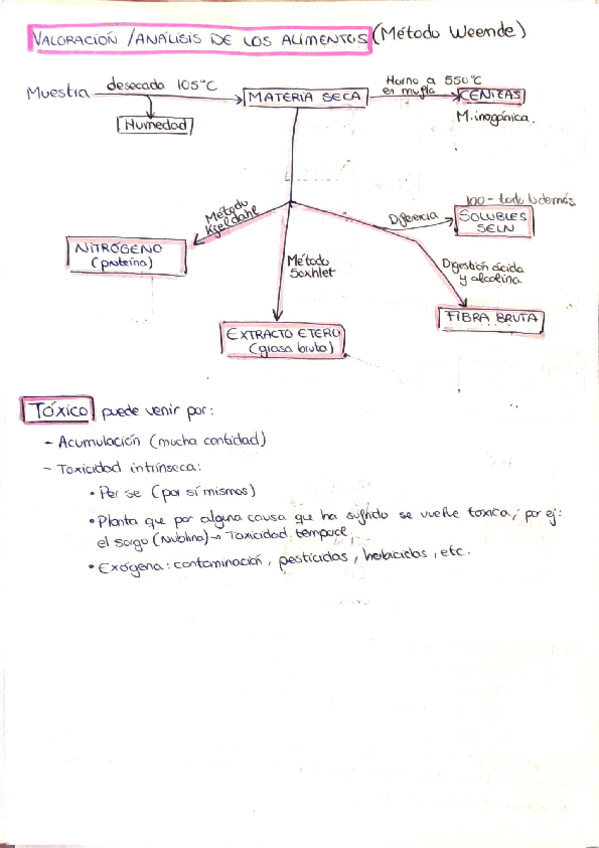 VALORACIÓN /ANÁLISIS DE LOS ALIMENTOS (Método Weende)
Muestra
desecada 105°C
Humedad
MATERIA SECA
Horno a 550°C
en mufla
CENIZAS
M. inogánica.
Método
Kjeldahl
NITRÓGENO
(proteína)
Método
Soxhlet
EXTRACTO ETERO
(grasa bruta)
Diferencia
100 - todo lo demás
SOLUBLES
SELN
Digestión ácida
y alcalina
FIBRA BRUTA
TÓXICO puede venir por:
- Acumulación (mucha cantidad)
- Toxicidad intrínseca:
• Per se (por sí mismos)
• Planta que por alguna causa que ha sufrido se vuelve toxica, por ej:
el sorgo → Toxicidad
• Exógena: contaminación, pesticidas, herbicidas, etc.